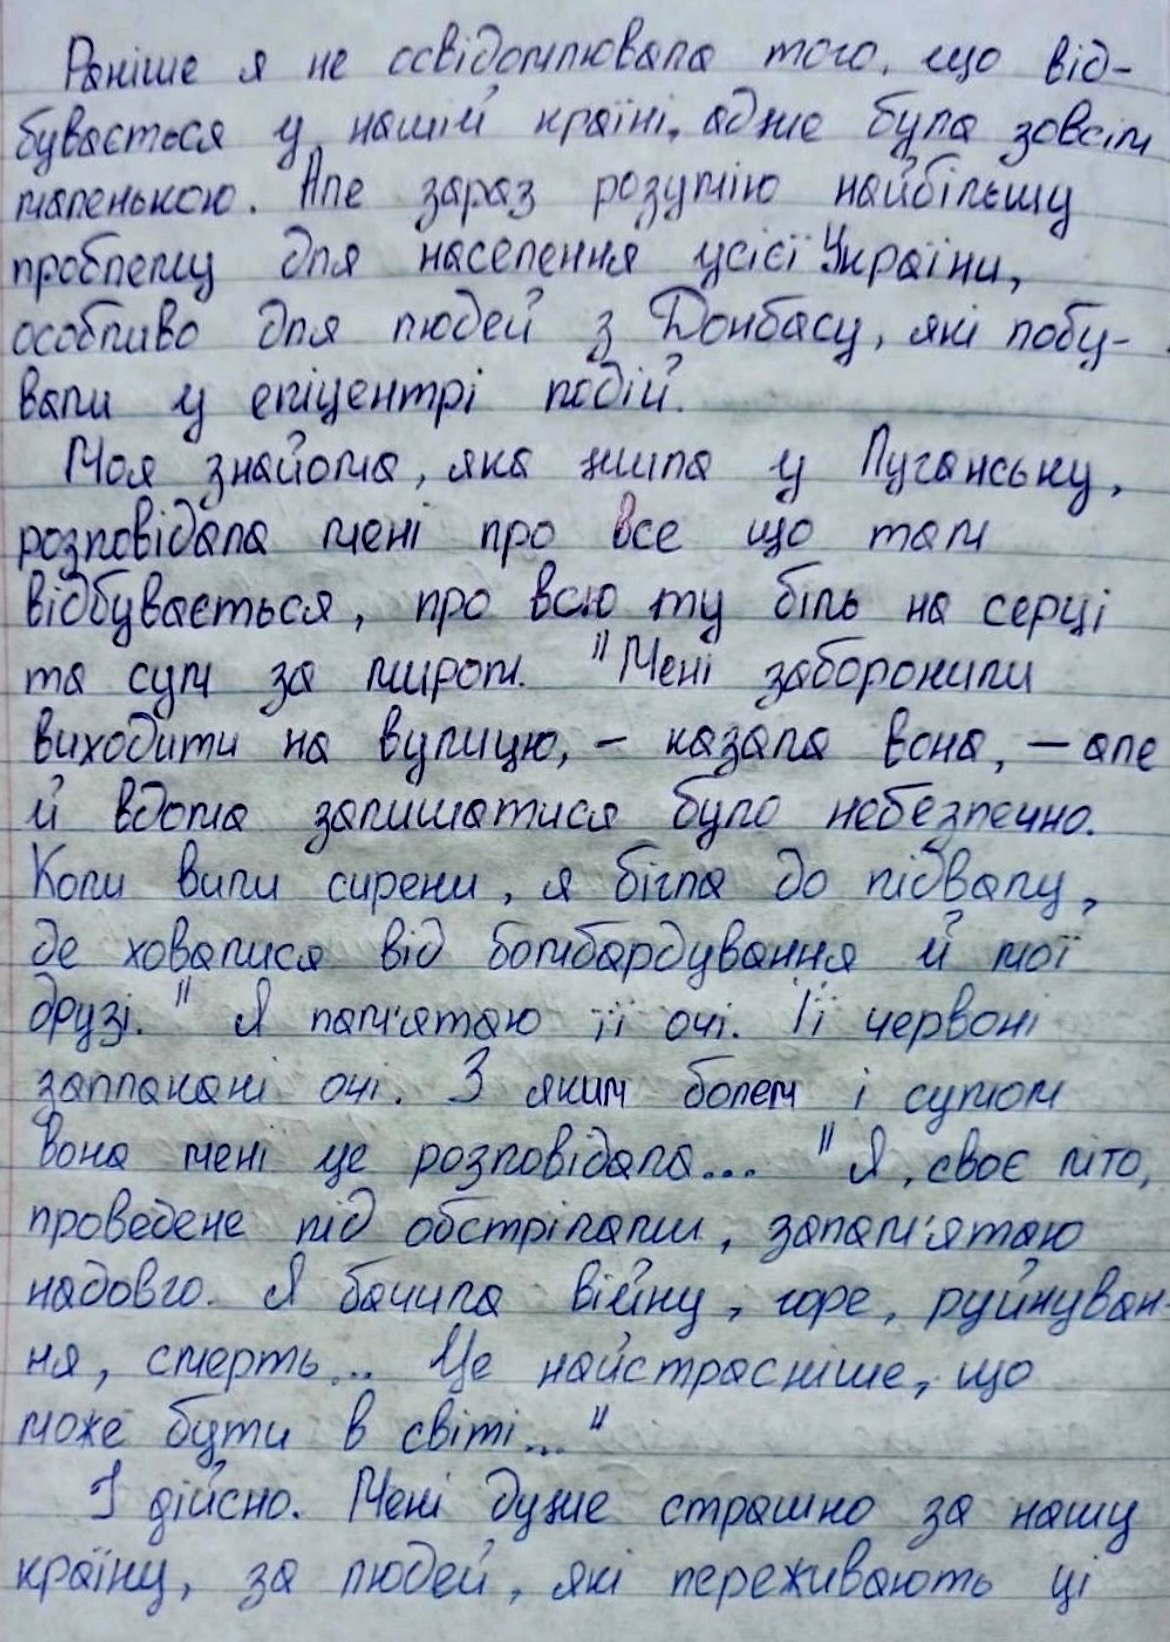 Раніше я не освідомлювала того, що від-
бувається у нашій країні, адже була зовсім
маленькою. Але зараз розумію найбільшу
проблему для населення усієї України,
особливо для людей з Донбасу, які побу-
вали у епіцентрі подій.
Моя знайома, яка жила у Луганську,
розповідала мені про все що там
відбувається, про всю ту біль на серці
та сум за миром. "Мені заборонили
виходити на вулицю, – казала вона, – але
й вдома залишатися було небезпечно.
Коли вили сирени, я бігла до підвалу,
де ховалися від бомбардування й мої
друзі." Я пам'ятаю її очі. Її червоні
заплакані очі. З яким болем і сумом
вона мені це розповідала... "Я, своє літо,
проведене під обстрілами, запам'ятаю
надовго. Я бачила війну, горе, руйнуван-
ня, смерть... Це найстрасніше, що
може бути в світі..."
І дійсно. Мені дуже страшно за нашу
країну, за людей, які переживають ці